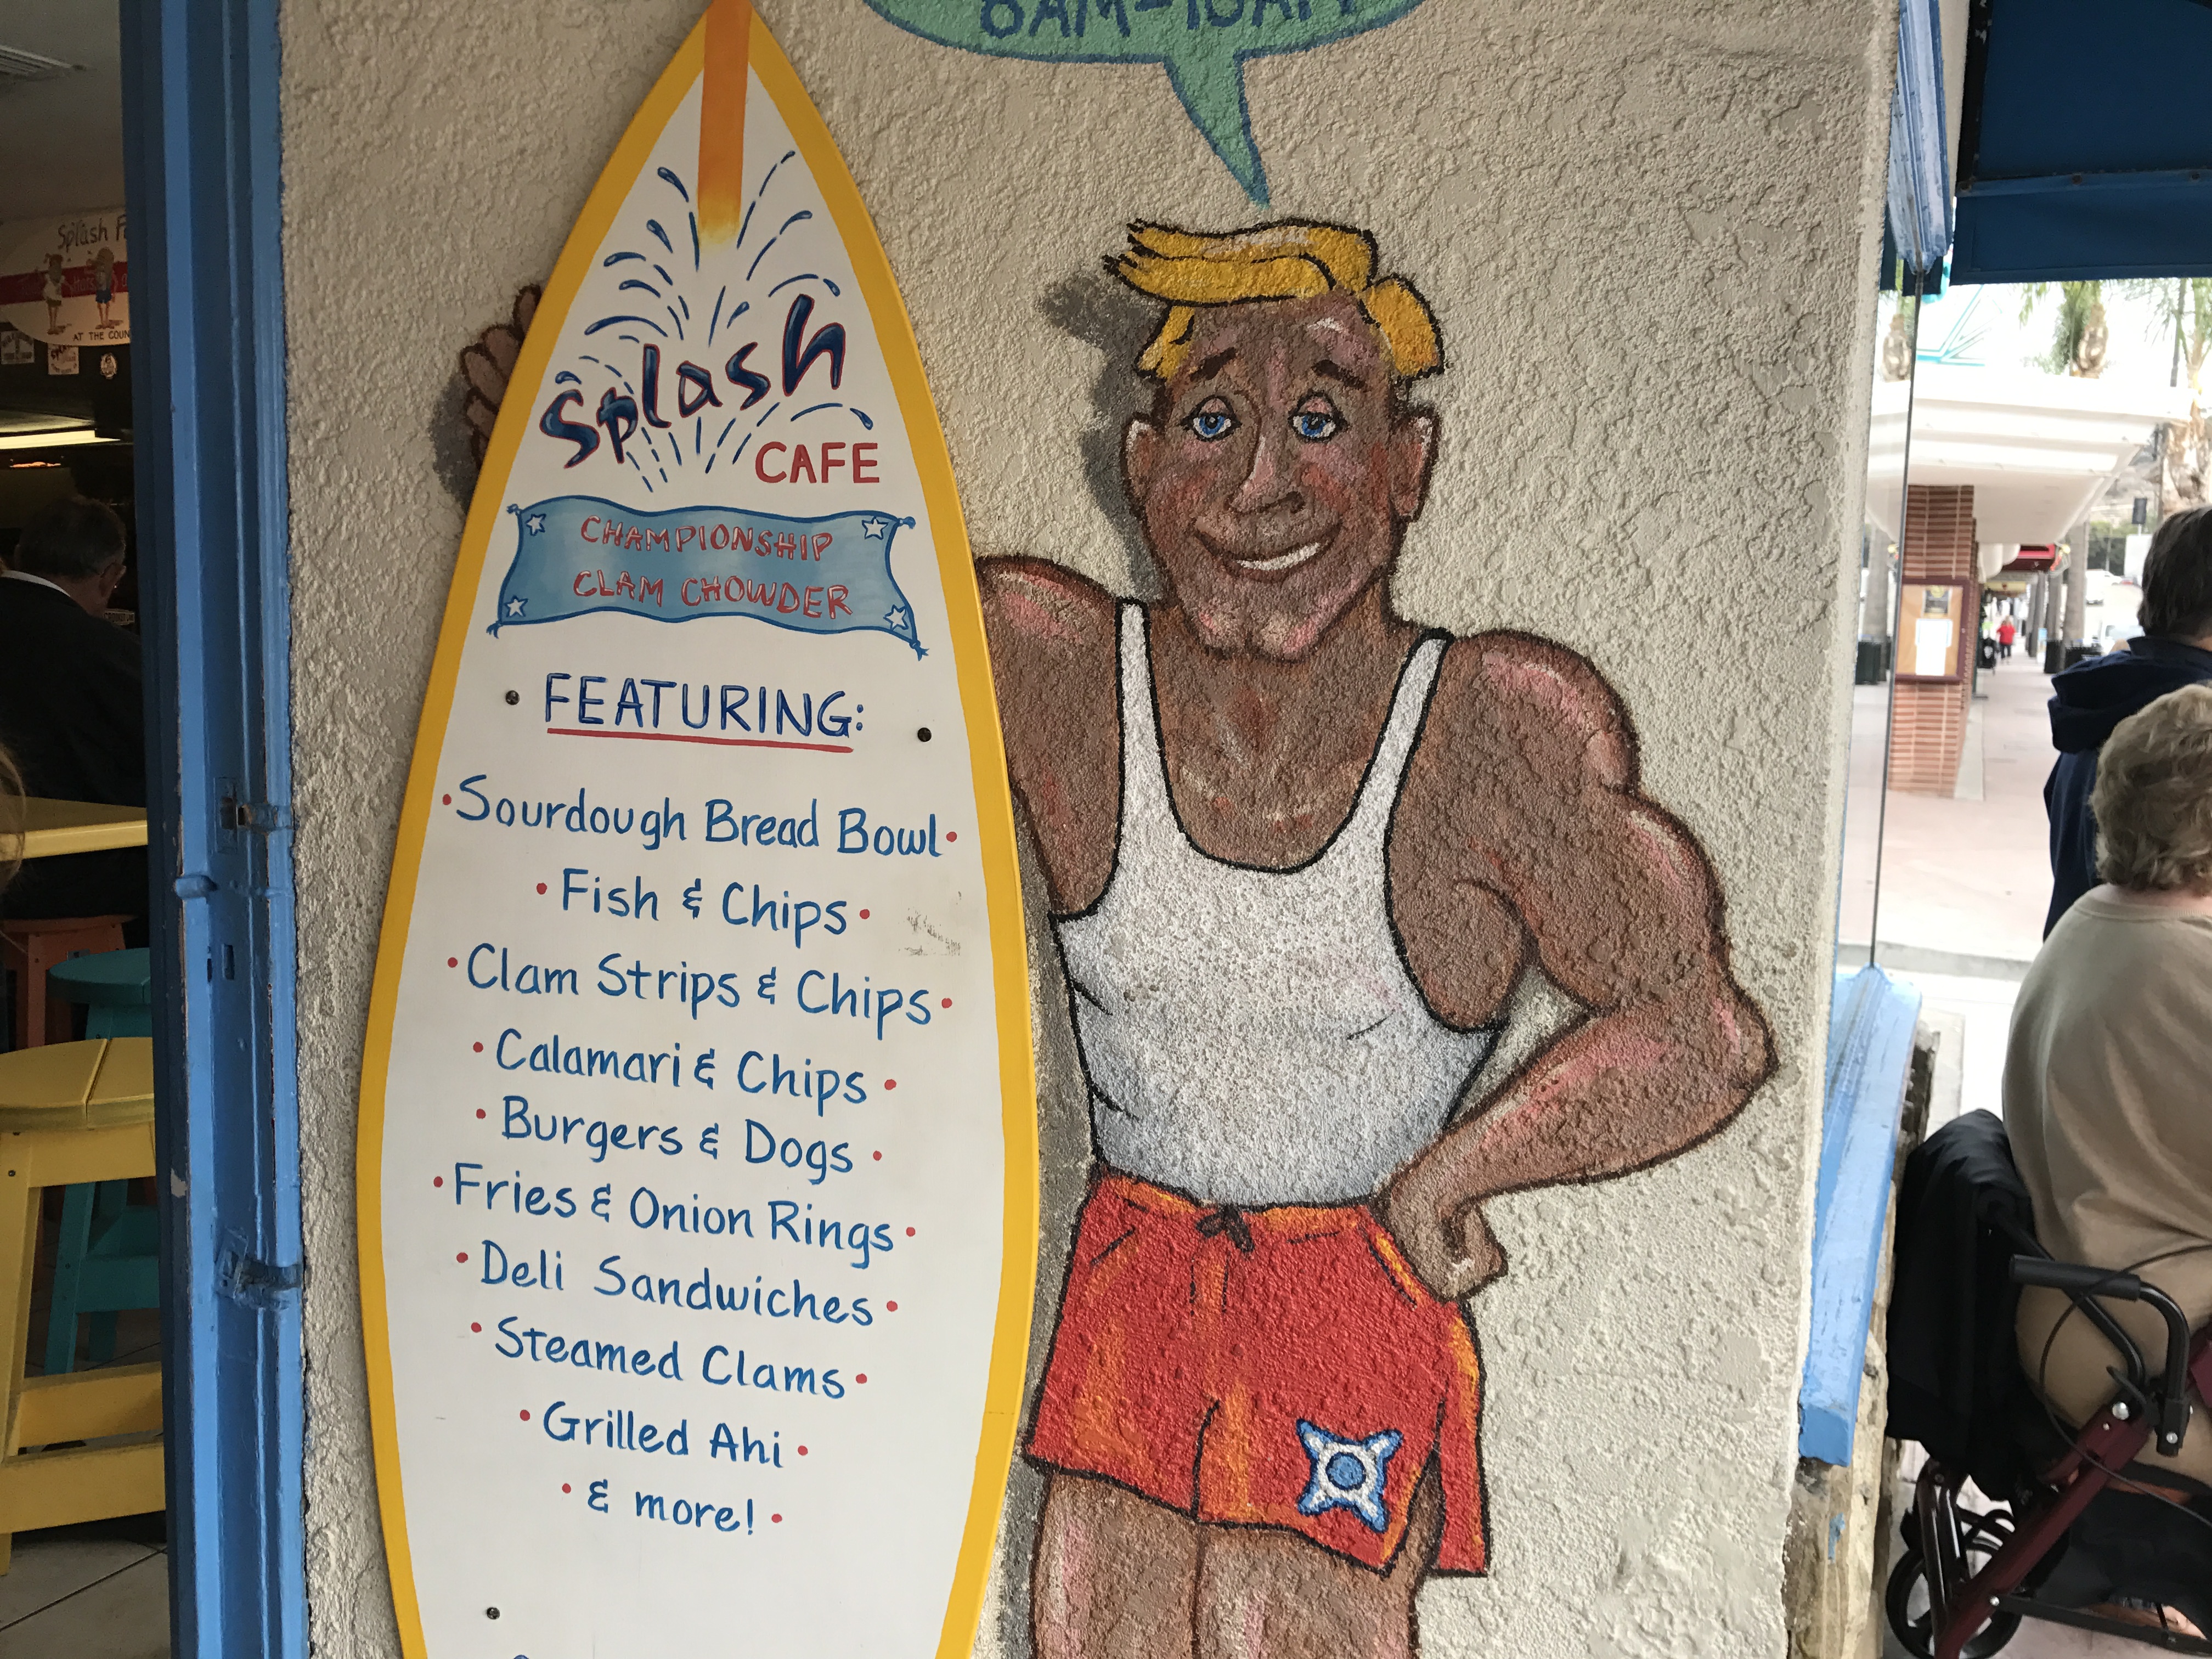 8AM-10AM
Splash
CAFE
CHAMPIONSHIP
CLAM CHOWDER
FEATURING:
• Sourdough Bread Bowl •
• Fish & Chips •
• Clam Strips & Chips •
• Calamari & Chips •
• Burgers & Dogs •
• Fries & Onion Rings •
• Deli Sandwiches •
• Steamed Clams •
• Grilled Ahi •
• & more! •
Splash
AT THE COUN